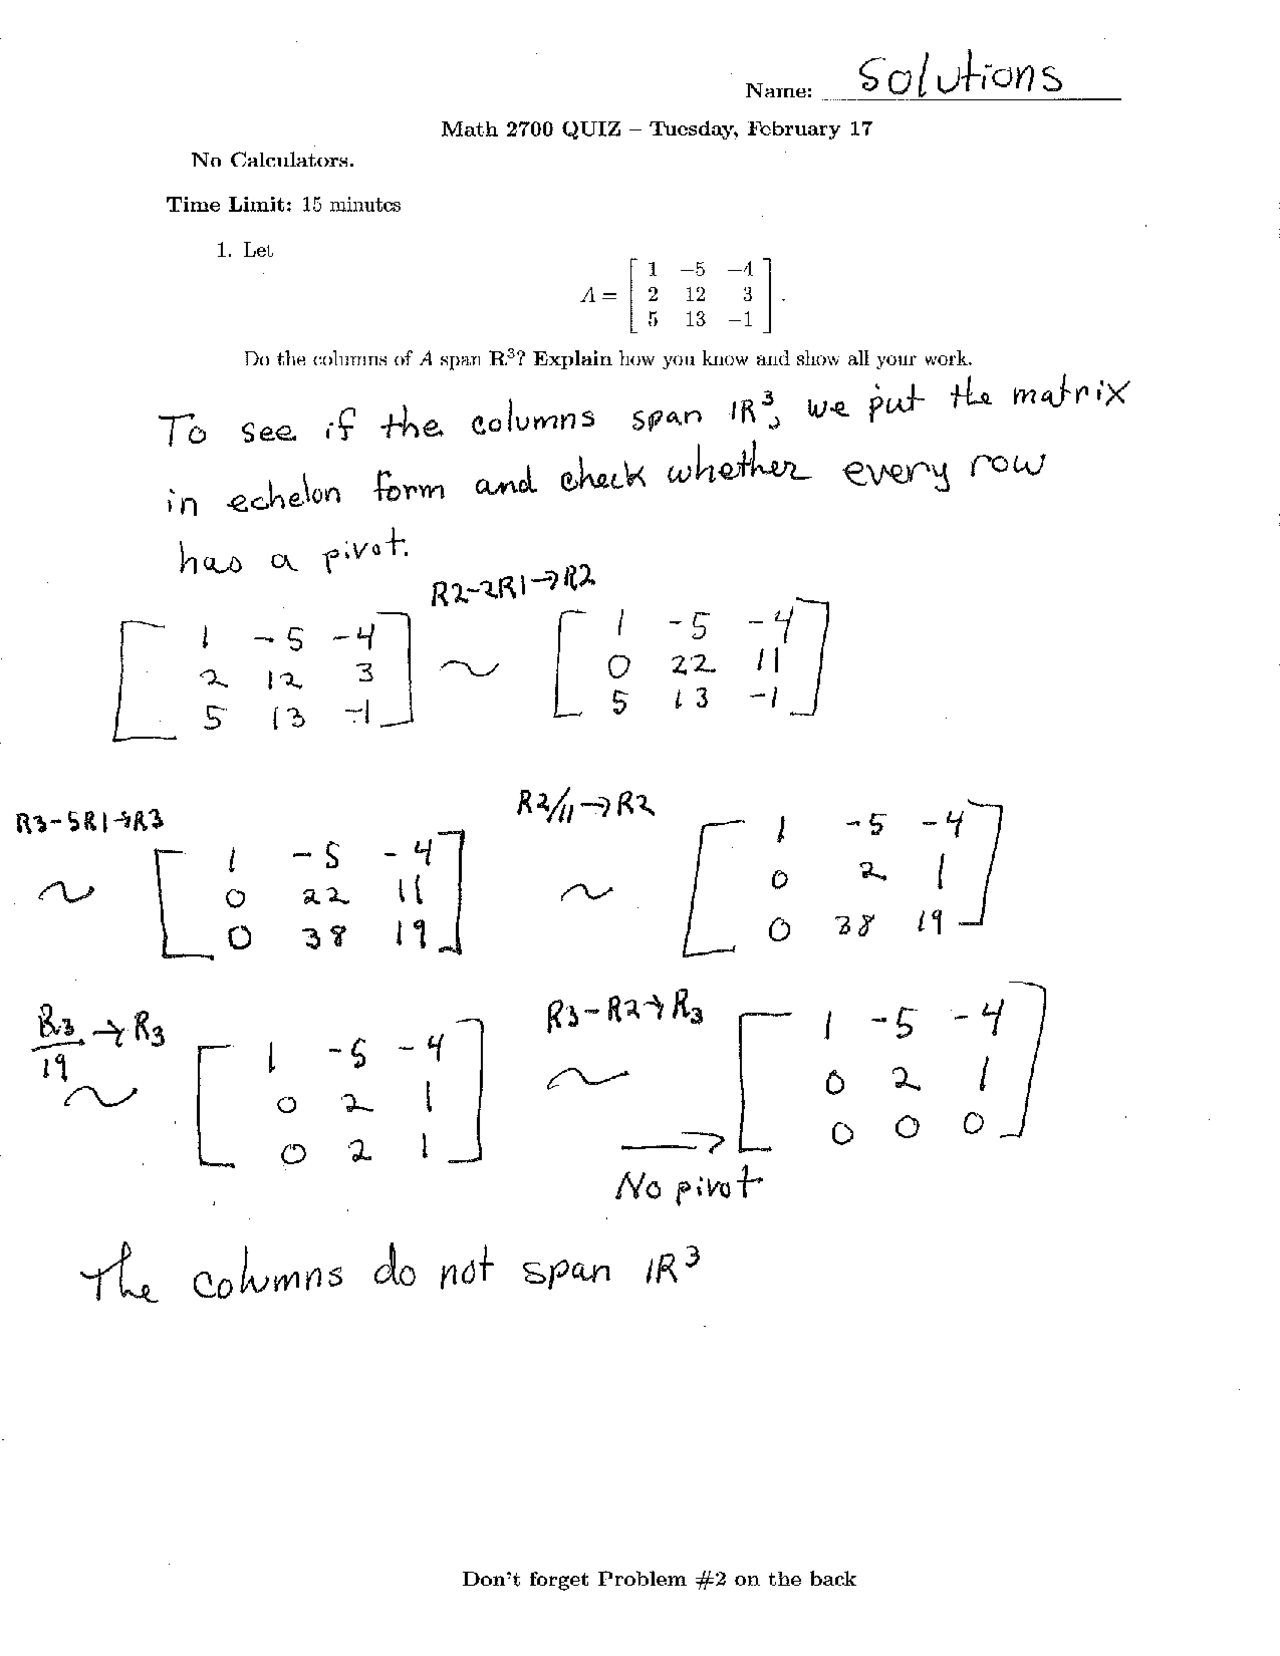 Name: Solutions
Math 2700 QUIZ – Tuesday, February 17
No Calculators.
Time Limit: 15 minutes
1. Let
A = [ 1 −5 −4
2 12 3
5 13 −1 ] .
Do the columns of A span R³? Explain how you know and show all your work.
To see if the columns span ℝ³, we put the matrix
in echelon form and check whether every row
has a pivot.
R2-2R1→R2
[ 1 -5 -4 ] ~ [ 1 -5 -4 ]
[ 2 12 3 ] [ 0 22 11 ]
[ 5 13 -1 ] [ 5 13 -1 ]
R3-5R1→R3 R2/11→R2
~ [ 1 -5 -4 ] ~ [ 1 -5 -4 ]
[ 0 22 11 ] [ 0 2 1 ]
[ 0 38 19 ] [ 0 38 19 ]
R3/19→R3 R3-R2→R3
~ [ 1 -5 -4 ] ~ [ 1 -5 -4 ]
[ 0 2 1 ] [ 0 2 1 ]
[ 0 2 1 ] → [ 0 0 0 ]
No pivot
The columns do not span ℝ³
Don't forget Problem #2 on the back